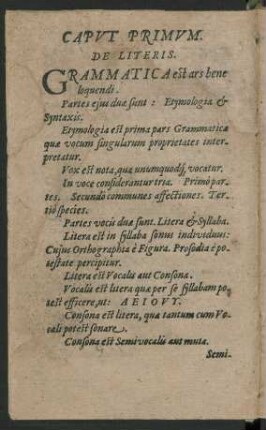 CAPVT PRIMVM.
DE LITERIS.
GRAMMATICA est ars bene
loquendi.
Partes ejus duæ sunt: Etymologia &
Syntaxis.
Etymologia est prima pars Grammaticæ
quæ vocum singularum proprietates inter-
pretatur.
Vox est nota, qua unumquodq; vocatur.
In voce considerantur tria. Primò par-
tes. Secundò communes affectiones. Ter-
tiò species.
Partes vocis duæ sunt. Litera & Syllaba.
Litera est in syllaba sonus individuus:
Cujus Orthographia è Figura. Prosodia è po-
testate percipitur.
Litera est Vocalis aut Consona.
Vocalis est litera quæ per se syllabam po-
test efficere, ut: A E I O V Y.
Consona est litera, quæ tantum cum Vo-
cali potest sonare.
Consona est Semivocalis aut muta.
Semi-